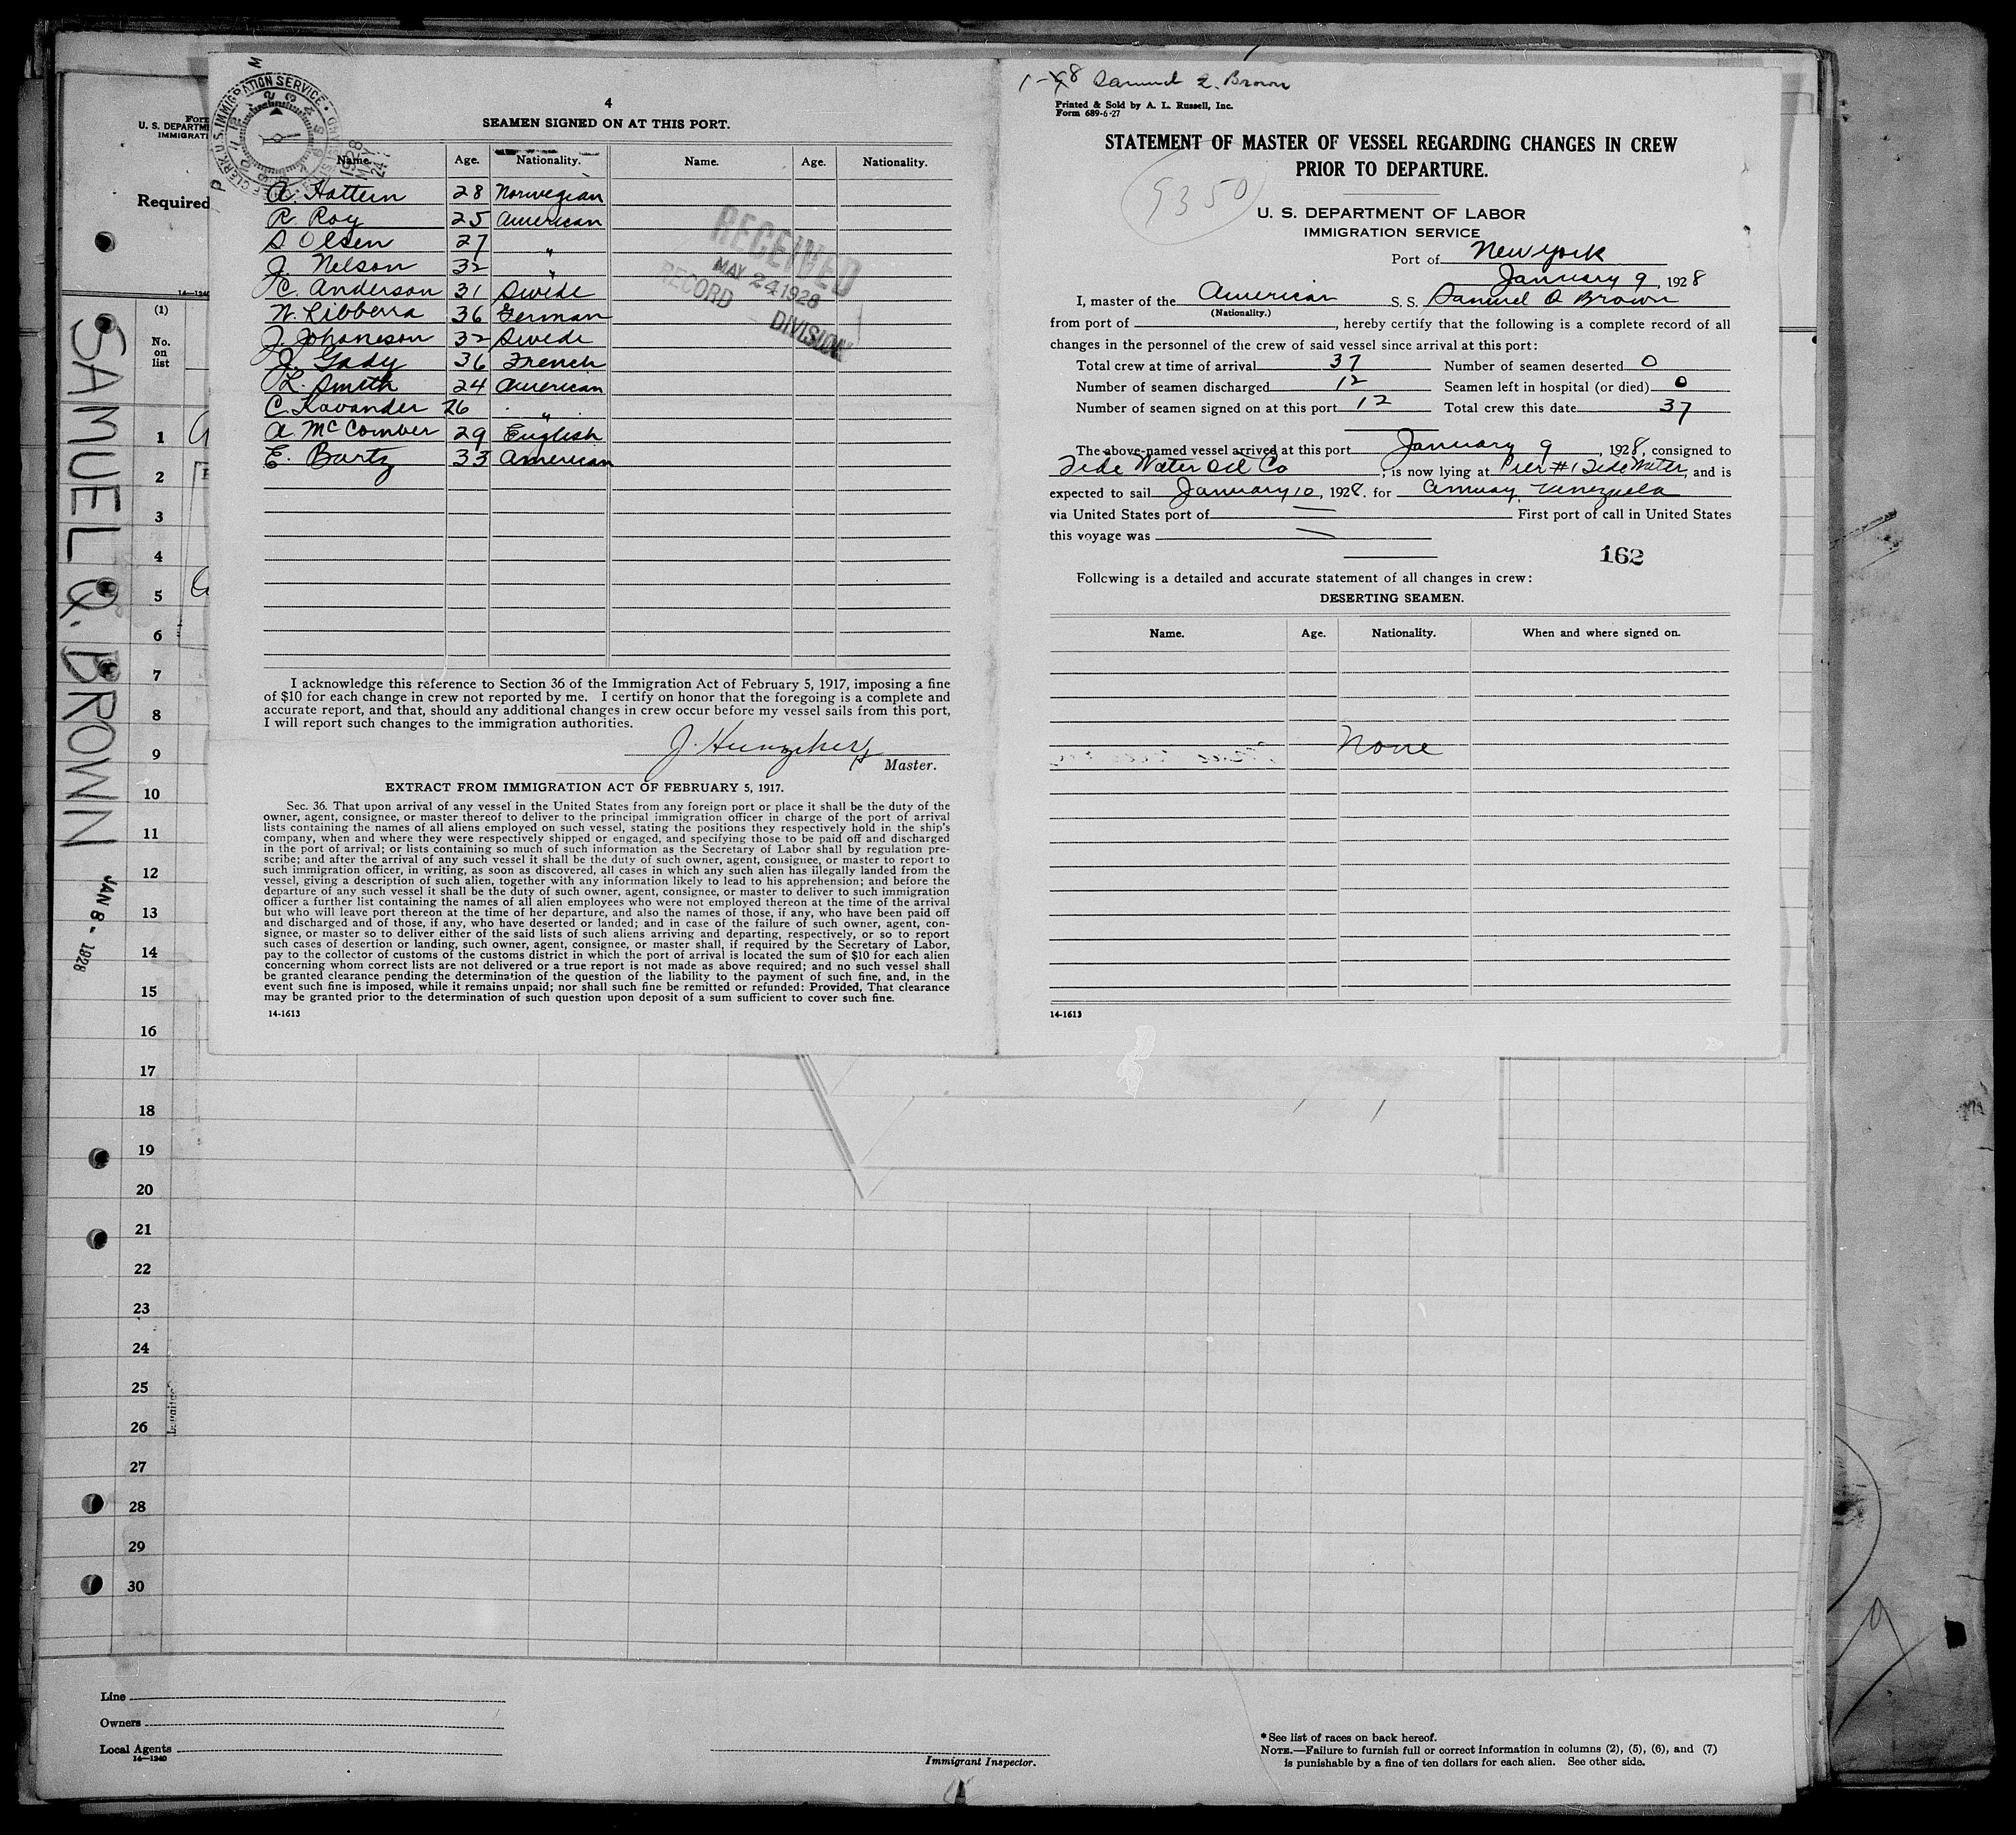 SAMUEL Q. BROWN
JAN 8 - 1928
U. S. DEPARTM
IMMIGRATI
Required
14—1240
(1)
No.
on
list
1
2
3
4
5
6
7
8
9
10
11
12
13
14
15
16
17
18
19
20
21
22
23
24
25
26
27
28
29
30
Line
Owners
Local Agents
14—1240
Immigrant Inspector.
* See list of races on back hereof.
NOTE.—Failure to furnish full or correct information in columns (2), (5), (6), and (7)
is punishable by a fine of ten dollars for each alien. See other side.
4
SEAMEN SIGNED ON AT THIS PORT.
Name. Age. Nationality. Name. Age. Nationality.
1928
MAY
24
A. Hattern 28 Norwegian
R. Roy 25 American
S Olsen 27 "
J. Nelson 32 "
C. Anderson 31 Swede
N. Libberra 36 German
J. Johansson 32 Swede
J. Gady 36 French
L. Smith 24 American
C. Kavander 26 "
A. McComber 29 English
E. Bartz 33 American
RECEIVED
MAY 24 1928
RECORD DIVISION
I acknowledge this reference to Section 36 of the Immigration Act of February 5, 1917, imposing a fine
of $10 for each change in crew not reported by me. I certify on honor that the foregoing is a complete and
accurate report, and that, should any additional changes in crew occur before my vessel sails from this port,
I will report such changes to the immigration authorities.
Master.
EXTRACT FROM IMMIGRATION ACT OF FEBRUARY 5, 1917.
Sec. 36. That upon arrival of any vessel in the United States from any foreign port or place it shall be the duty of the
owner, agent, consignee, or master thereof to deliver to the principal immigration officer in charge of the port of arrival
lists containing the names of all aliens employed on such vessel, stating the positions they respectively hold in the ship's
company, when and where they were respectively shipped or engaged, and specifying those to be paid off and discharged
in the port of arrival; or lists containing so much of such information as the Secretary of Labor shall by regulation pre-
scribe; and after the arrival of any such vessel it shall be the duty of such owner, agent, consignee, or master to report to
such immigration officer, in writing, as soon as discovered, all cases in which any such alien has illegally landed from the
vessel, giving a description of such alien, together with any information likely to lead to his apprehension; and before the
departure of any such vessel it shall be the duty of such owner, agent, consignee, or master to deliver to such immigration
officer a further list containing the names of all alien employees who were not employed thereon at the time of the arrival
but who will leave port thereon at the time of her departure, and also the names of those, if any, who have been paid off
and discharged and of those, if any, who have deserted or landed; and in case of the failure of such owner, agent, con-
signee, or master so to deliver either of the said lists of such aliens arriving and departing, respectively, or so to report
such cases of desertion or landing, such owner, agent, consignee, or master shall, if required by the Secretary of Labor,
pay to the collector of customs of the customs district in which the port of arrival is located the sum of $10 for each alien
concerning whom correct lists are not delivered or a true report is not made as above required; and no such vessel shall
be granted clearance pending the determination of the question of the liability to the payment of such fine, and, in the
event such fine is imposed, while it remains unpaid; nor shall such fine be remitted or refunded: Provided, That clearance
may be granted prior to the determination of such question upon deposit of a sum sufficient to cover such fine.
14-1613
Samuel Q. Brown
Printed & Sold by A. L. Russell, Inc.
Form 689-6-27
STATEMENT OF MASTER OF VESSEL REGARDING CHANGES IN CREW
PRIOR TO DEPARTURE.
9350
U. S. DEPARTMENT OF LABOR
IMMIGRATION SERVICE
Port of New York
January 9, 1928
I, master of the American S. S. Samuel Q Brown
(Nationality.)
from port of , hereby certify that the following is a complete record of all
changes in the personnel of the crew of said vessel since arrival at this port:
Total crew at time of arrival 37 Number of seamen deserted 0
Number of seamen discharged 12 Seamen left in hospital (or died) 0
Number of seamen signed on at this port 12 Total crew this date 37
The above-named vessel arrived at this port January 9, 1928, consigned to
Tide Water Oil Co, is now lying at Pier #1 Tide Water, and is
expected to sail January 10, 1928. for Amuay, Venezuela
via United States port of First port of call in United States
this voyage was
162
Following is a detailed and accurate statement of all changes in crew:
DESERTING SEAMEN.
Name. Age. Nationality. When and where signed on.
None
14-1613